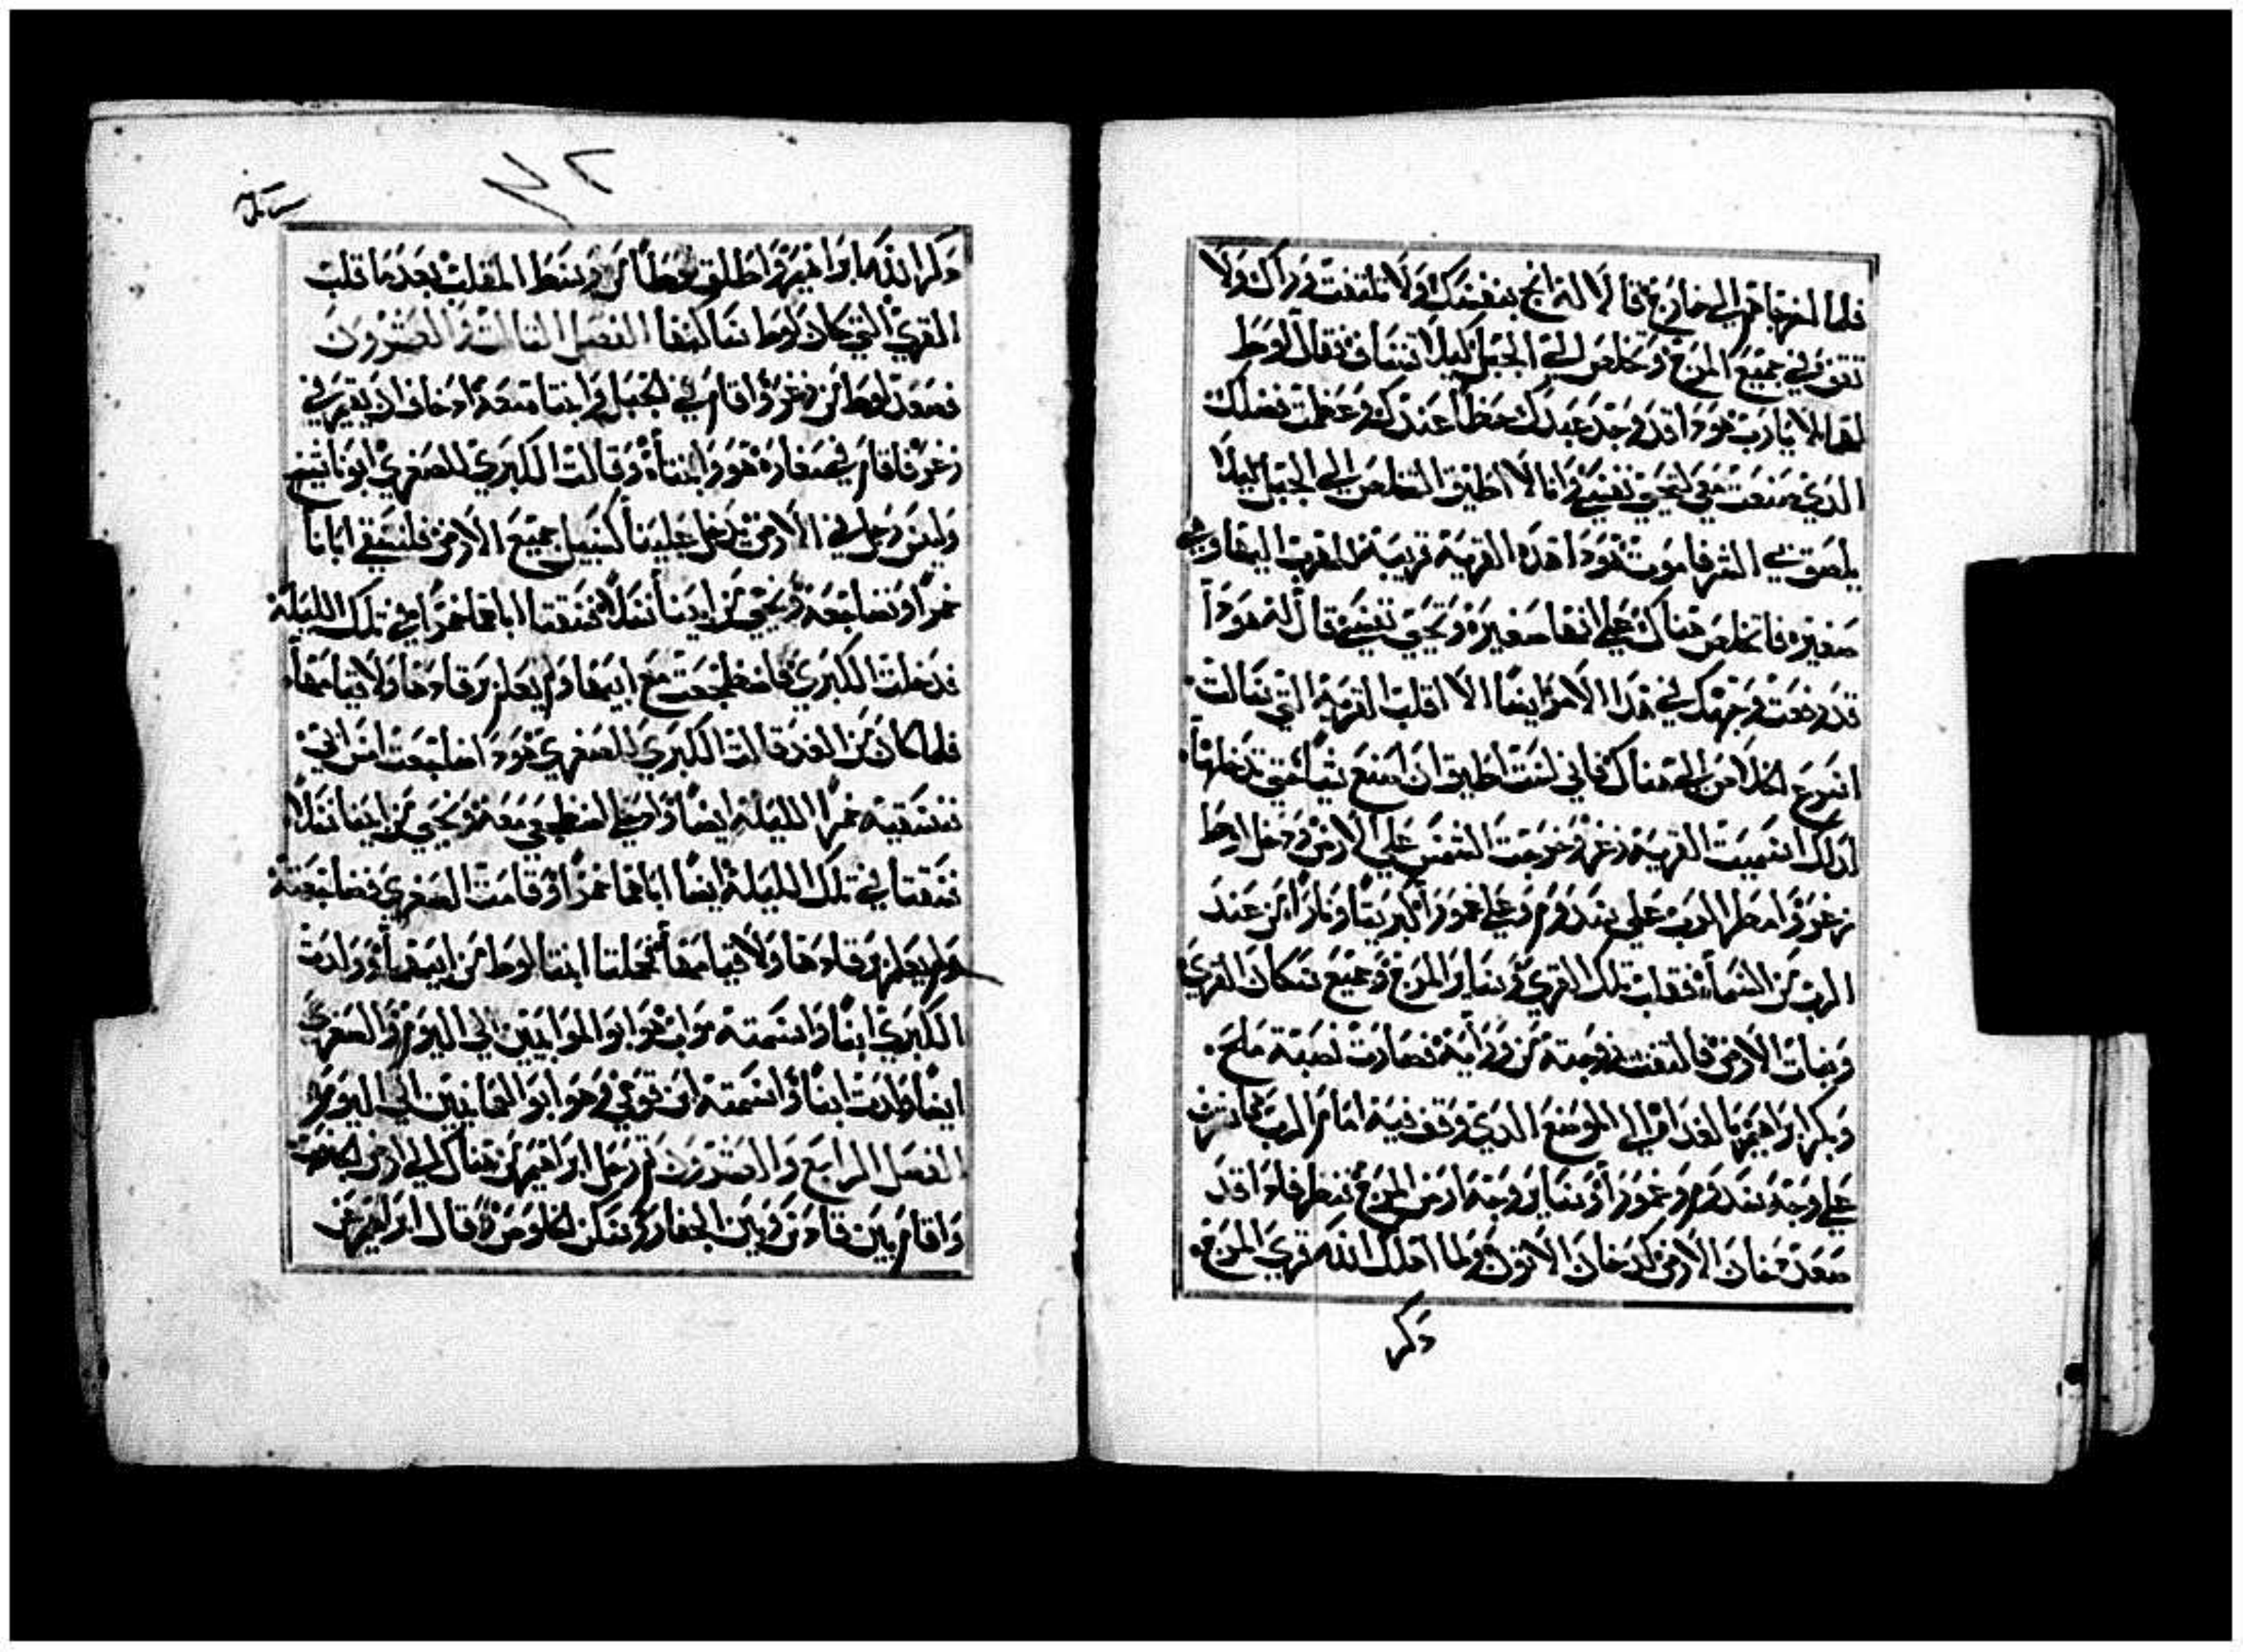 فلما اخرجاهم الى خارج قالا له انج بنفسك ولا تلتفت وراك ولا
تقف في جميع المرج وتخلص الى الجبل كيلا تنساف فقال لوط
لهما لا يارب هودا قد وجد عبدك حظا عندك وعظمت فضلك
الدي صنعت معي لتحيي نفسي وانا لا اطيق التخلص الى الجبل ليلا
يلصق بي الشر فاموت هودا هده القرية قريبة للهرب اليها وهي
صغيرة فاتخلص هناك على انها صغيره وتحيى نفسي قال له هودا
قد رفعت وجهك في هدا الامر ايضا الا اقلب القرية التي سالت
اسرع اخلاص الى هناك فاني لست اطيق ان اصنع شيا حتى تدخلها
لدلك اسميت القرية زغر وخرجت الشمس على الارض ودخل لوط
زغر وامطر الرب على سدوم وعلى عمورا كبريتا ونارا من عند
الرب من السما فقلب تلك القرى وساير المرج وجميع سكان القرى
ونبات الارض فالتفتت زوجته من ورايه فصارت نصبة ملح
وبكر ابراهيم بالغداه الى الموضع الدي وقف فيه امام الرب فاشرف
على وجه سدوم وعمورا وساير وجه ارض المرج فنظر فادا قد
صعد دخان الارض كدخان الاتون ولما اهلك الله قرى المرج
دكر
دكر الله ابراهيم واطلق لوطا من وسط المقلب بعد ما قلب
القرى التي كان لوط ساكنها الفصل التالت والعشرون
فصعد لوط من زغر واقام في الجبل وابنتاه معه اد خاف ان يقيم في
زغر فاقام في مغاره هو وابنتاه وقالت الكبرى للصغرى ابونا شيخ
وليس رجل في الارض يدخل علينا كسبيل جميع الارض فلنسقي ابانا
خمرا ونضاجعه ونحيي من ابينا نسلا فسقتا اباهما خمرا في تلك الليلة
فدخلت الكبرى فاضطجعت مع ابيها ولم يعلم برقادها ولا قيامها
فلما كان من الغد قالت الكبرى للصغرى هودا ضاجعت امس ابي
نسقيه خمرا الليلة ايضا وادخلي اضطجعي معه ونحيي من ابينا نسلا
فسقتا في تلك الليلة ايضا اباهما خمرا وقامت الصغرى فضاجعته
ولم يعلم برقادها ولا قيامها فحملتا ابنتا لوط من ابيهما وولدت
الكبرى ابنا واسمته مواب هو ابو الموابيين الى اليوم والصغرى
ايضا ولدت ابنا واسمته ابن قومي وهو ابو العمانيين الى اليوم
الفصل الرابع والعشرون تم رحل ابراهيم من هناك الى ارض
واقام بين قادس وبين الجفار وسكن الخلوص وقال ابراهيم عن